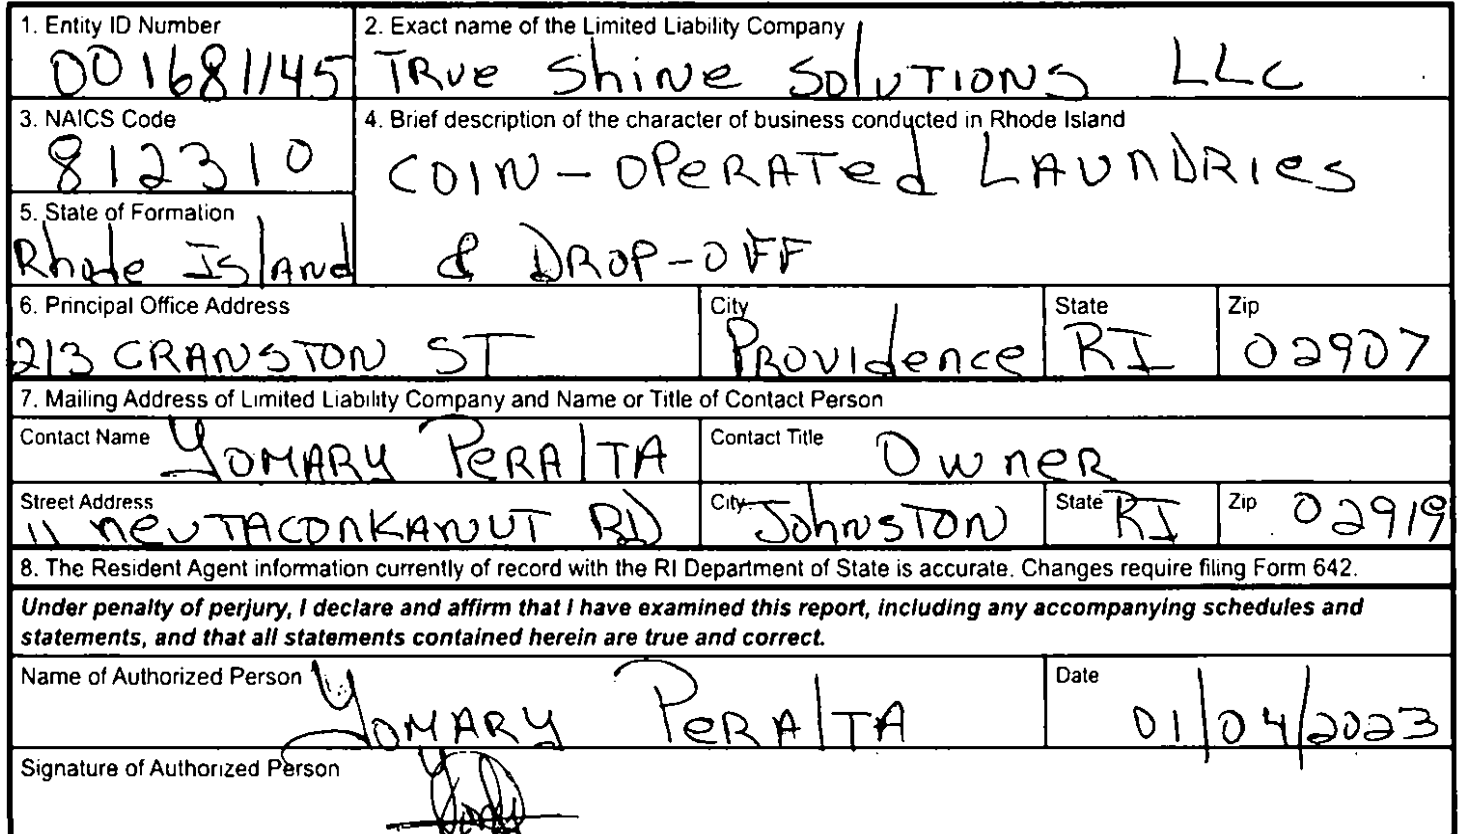 1. Entity ID Number 2. Exact name of the Limited Liability Company
001681145 TRUe ShiNe SOlUTIONS LLC
3. NAICS Code 4. Brief description of the character of business conducted in Rhode Island
812310 COIN-OPeRATed LAUNDRIes
5. State of Formation
Rhode ISlANd & DROP-OFF
6. Principal Office Address City State Zip
213 CRANSTON ST PROVIdence RI 02907
7. Mailing Address of Limited Liability Company and Name or Title of Contact Person
Contact Name YOMARY PeRAlTA Contact Title OwneR
Street Address City State Zip
11 neuTACONKANUT RD JohnSTON RI 02919
8. The Resident Agent information currently of record with the RI Department of State is accurate. Changes require filing Form 642.
Under penalty of perjury, I declare and affirm that I have examined this report, including any accompanying schedules and
statements, and that all statements contained herein are true and correct.
Name of Authorized Person Date
YOMARY PeRAlTA 01/04/2023
Signature of Authorized Person